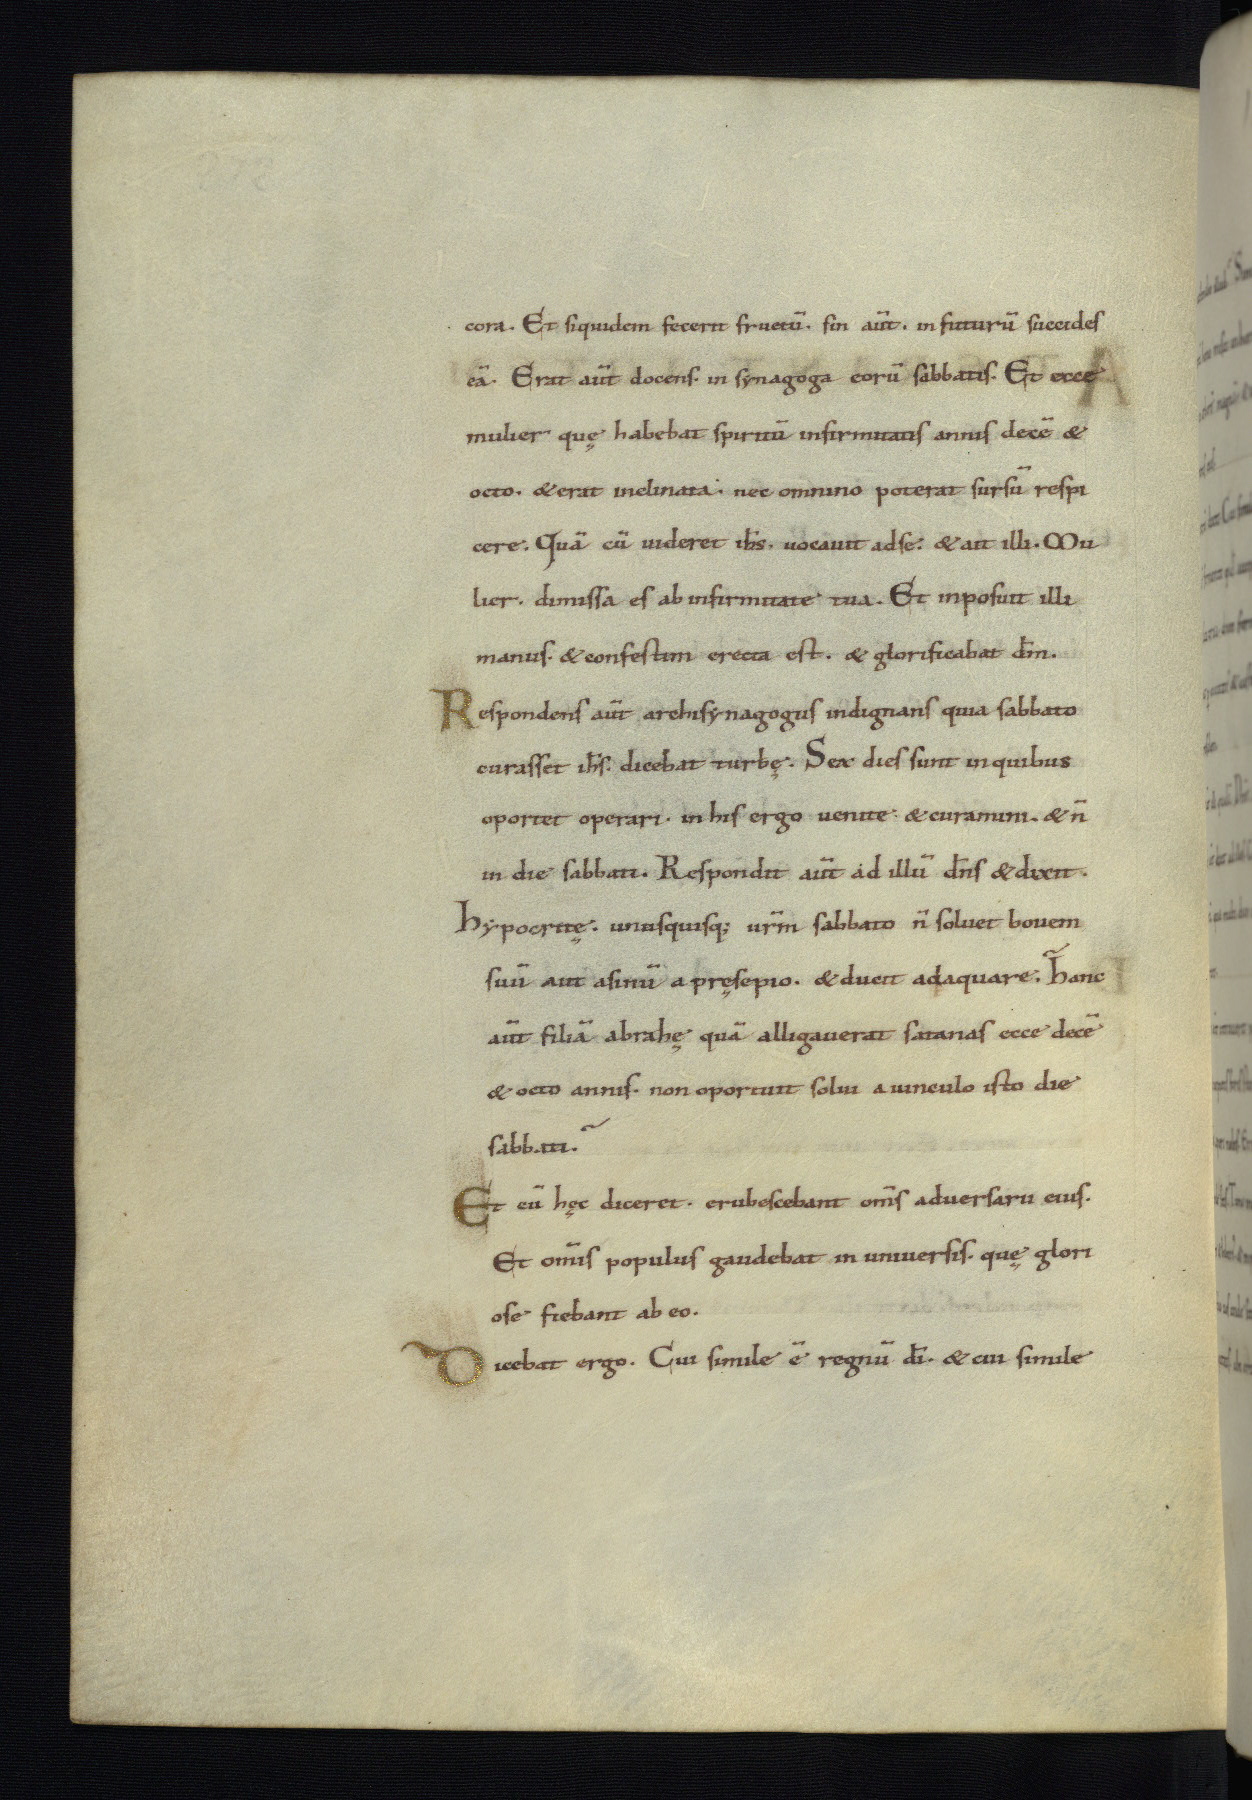 cora. Et siquidem fecerit fructū. sin aūt. in futurū succides
eā. Erat aūt docens. in synagoga eorū sabbatis. Et ecce
mulier quę habebat spiritū infirmitatis annis decē &
octo. & erat inclinata. nec omnino poterat sursū respi
cere. Quā cū uideret ih̄s. uocauit ad se. & ait illi. Mu
lier. dimissa es ab infirmitate tua. Et inposuit illi
manus. & confestim erecta est. & glorificabat dm̄.
Respondens aūt archisynagogus indignans quia sabbato
curasset ih̄s. dicebat turbę. Sex dies sunt in quibus
oportet operari. in his ergo uenite. & curamini. & n̄
in die sabbati. Respondit aūt ad illū dn̄s & dixit.
Hypocritę. unusquisq; urm̄ sabbato n̄ soluet bouem
suū aut asinū a pręsepio. & ducit adaquare. Hanc
aūt filiā abrahę quā alligauerat satanas ecce decē
& octo annis. non oportuit solui a uinculo isto die
sabbati.
Et cū hęc diceret. erubescebant om̄s aduersarii eius.
Et omīs populus gaudebat in uniuersis. quę glori
ose fiebant ab eo.
Dicebat ergo. Cui simile ē regnū dī. & cui simile